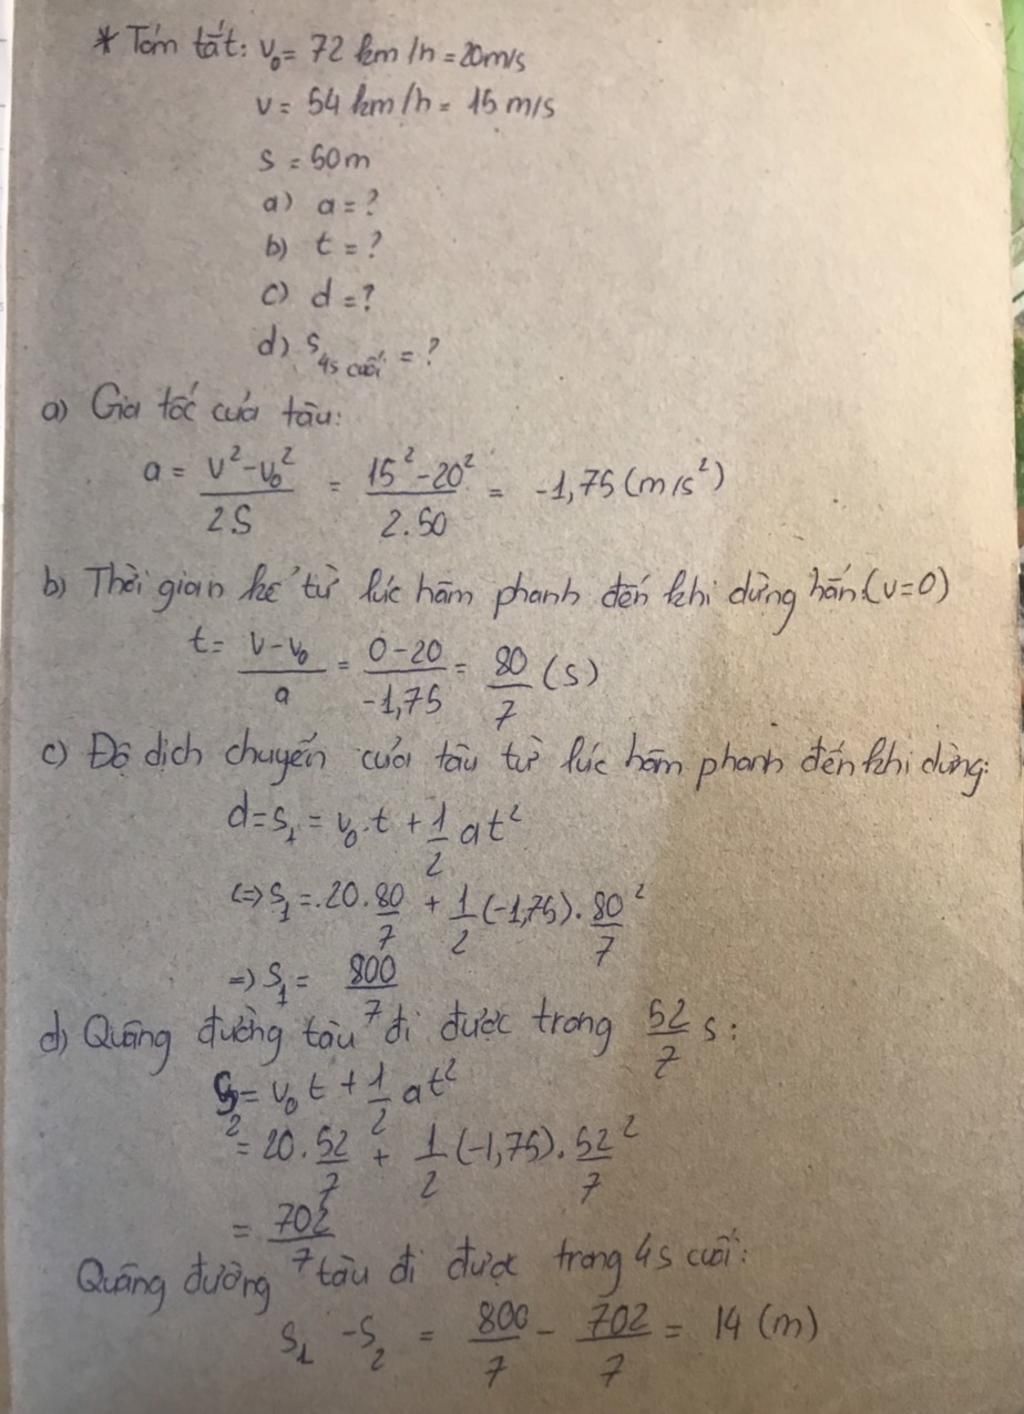 * Tóm tắt: v₀ = 72 km/h = 20m/s
v = 54 km/h = 15 m/s
s = 50m
a) a = ?
b) t = ?
c) d = ?
d) s 4s cuối = ?
a) Gia tốc của tàu:
a = (v² - v₀²)/(2S) = (15² - 20²)/(2.50) = -1,75 (m/s²)
b) Thời gian kể từ lúc hãm phanh đến khi dừng hẳn (v=0)
t = (v - v₀)/a = (0 - 20)/(-1,75) = 80/7 (s)
c) Độ dịch chuyển của tàu từ lúc hãm phanh đến khi dừng:
d = s₁ = v₀.t + 1/2 at²
<=> s₁ = .20.80/7 + 1/2 (-1,75).80/7²
=> s₁ = 800/7
d) Quãng đường tàu đi được trong 52/7 s:
s₂ = v₀ t + 1/2 at²
= 20.52/7 + 1/2 (-1,75).52/7²
= 702/7
Quãng đường tàu đi được trong 4s cuối:
s₁ - s₂ = 800/7 - 702/7 = 14 (m)